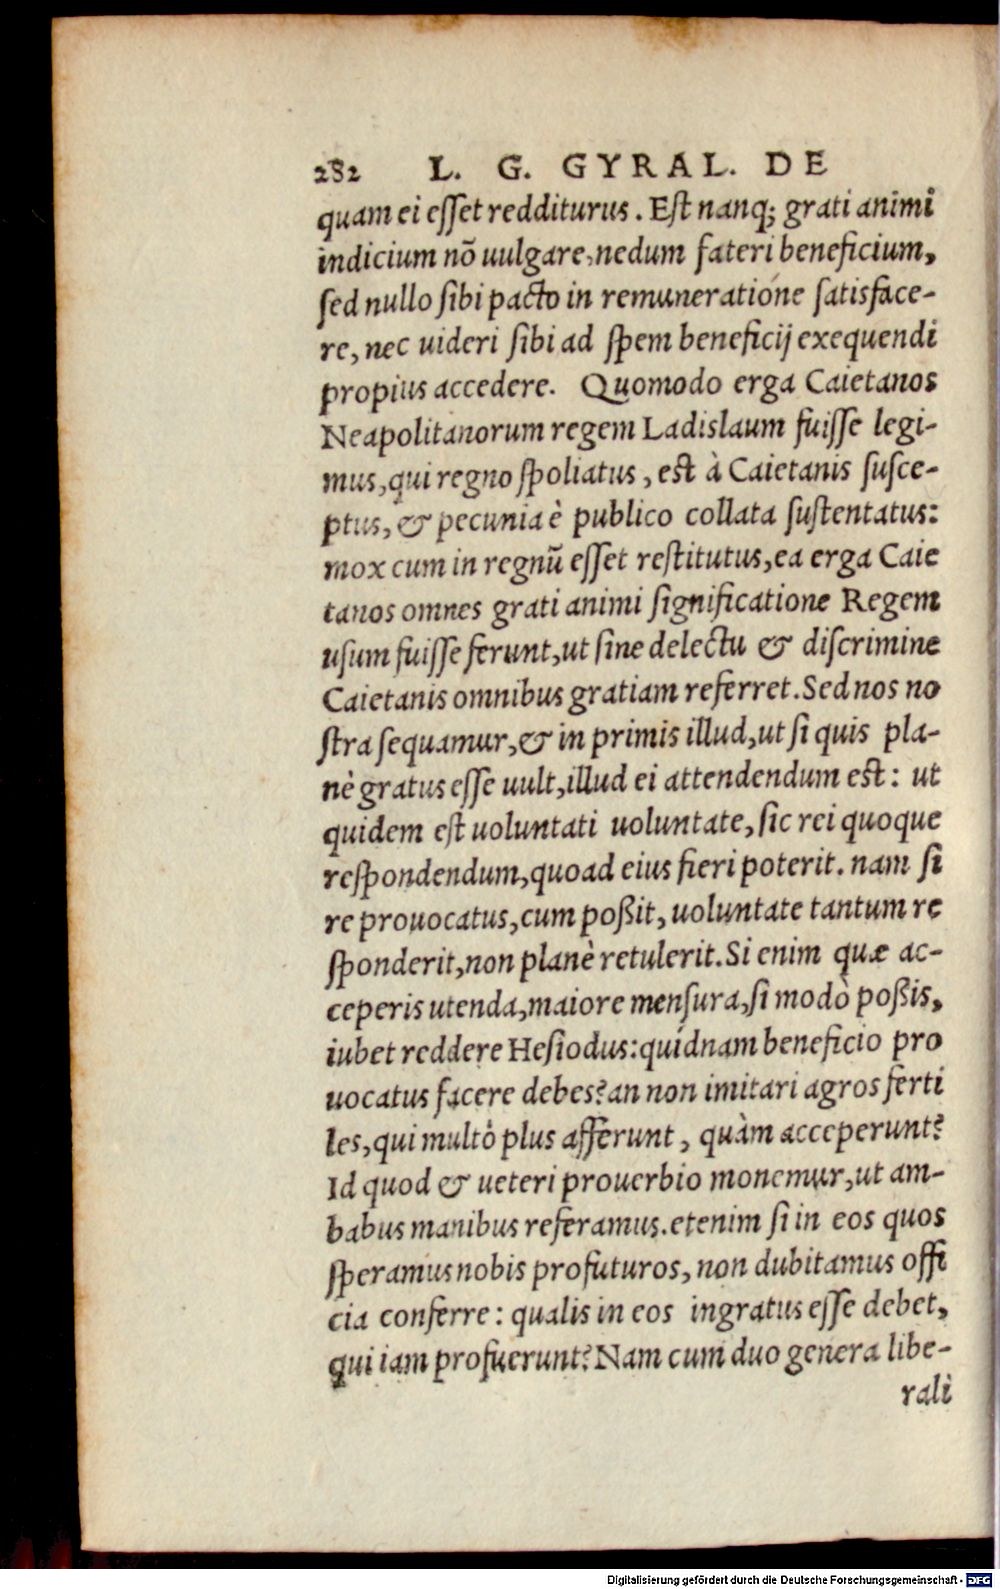 282 L. G. GYRAL. DE
quam ei eſſet redditurus. Eſt nanq; grati animi
indicium nō uulgare, nedum fateri beneficium,
ſed nullo ſibi pacto in remuneratióne ſatisface-
re, nec uideri ſibi ad ſpem beneficij exequendi
propius accedere. Quomodo erga Caietanos
Neapolitanorum regem Ladislaum fuiſſe legi-
mus, qui regno ſpoliatus, est à Caietanis ſuſce-
ptus, & pecunia è publico collata ſuſtentatus:
mox cum in regnū eſſet reſtitutus, ea erga Caie
tanos omnes grati animi ſignificatione Regem
uſum fuiſſe ferunt, ut ſine delectu & diſcrimine
Caietanis omnibus gratiam referret. Sed nos no
ſtra ſequamur, & in primis illud, ut ſi quis pla-
nè gratus eſſe uult, illud ei attendendum est: ut
quidem eſt uoluntati uoluntate, ſic rei quoque
reſpondendum, quoad eius fieri poterit. nam ſi
re prouocatus, cum poßit, uoluntate tantum re
ſponderit, non planè retulerit. Si enim quæ ac-
ceperis utenda, maiore menſura, ſi modò poßis,
iubet reddere Heſiodus: quidnam beneficio pro
uocatus facere debes? an non imitari agros ferti
les, qui multò plus afferunt, quàm acceperunt?
Id quod & ueteri prouerbio monemur, ut am-
babus manibus referamus. etenim ſi in eos quos
ſperamus nobis profuturos, non dubitamus offi
cia conferre: qualis in eos ingratus eſſe debet,
qui iam profuerunt? Nam cum duo genera libe-
rali
Digitalisierung gefördert durch die Deutsche Forschungsgemeinschaft - DFG